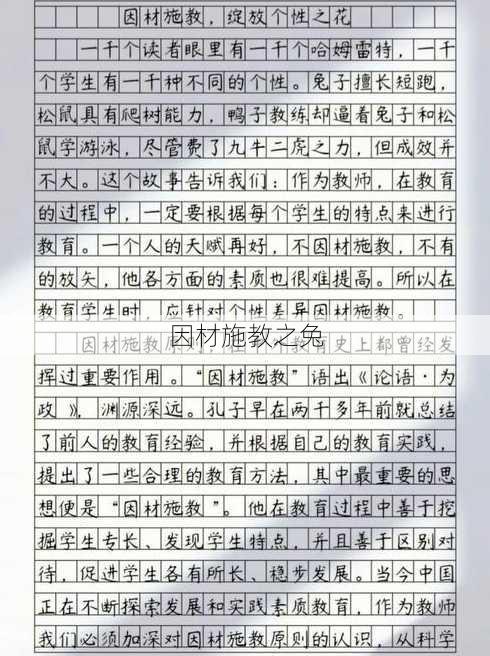 因材施教，绽放个性之花
一千个读者眼里有一千个哈姆雷特，一千
个学生有一千种不同的个性。兔子擅长短跑，
松鼠具有爬树能力，鸭子教练却逼着兔子和松
鼠学游泳，尽管费了九牛二虎之力，但成效并
不大。这个故事告诉我们：作为教师，在教育
的过程中，一定要根据每个学生的特点来进行
教育。一个人的天赋再好，不因材施教，不有
的放矢，他各方面的素质也很难提高。所以在
教育学生时，应针对个性差异因材施教。
因材施教之兔
因材施教原则，在教育史上都曾经发
挥过重要作用。“因材施教”语出《论语·为
政》，渊源深远。孔子早在两千多年前就总结
了前人的教育经验，并根据自己的教育实践，
提出了一些合理的教育方法，其中最重要的思
想使是“因材施教”。他在教育过程中善于挖
掘学生专长、发现学生特点，并且善于区别对
待，促进学生各有所长、稳步发展。当今中国
正在不断探索发展和实践素质教育，作为教师
我们必须加深对因材施教原则的认识，从科学